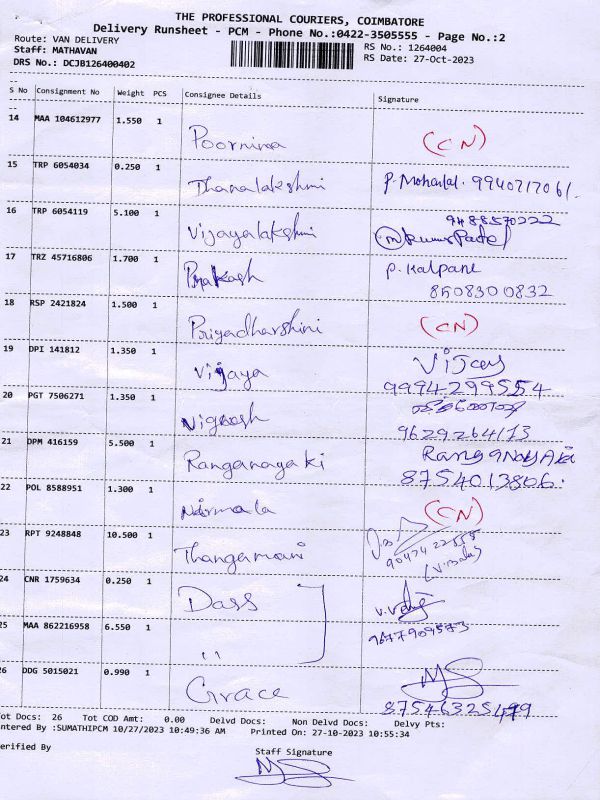 THE PROFESSIONAL COURIERS, COIMBATORE
Delivery Runsheet - PCM - Phone No.:0422-3505555 - Page No.:2
Route: VAN DELIVERY
RS No.: 1264004
Staff: MATHAVAN
RS Date: 27-Oct-2023
DRS No.: DCJB126400402
S No Consignment No Weight PCS Consignee Details Signature
14 MAA 104612977 1.550 1 Poornima (CN)
15 TRP 6054034 0.250 1 Dhanalakshmi P. Mohanlal. 9940717061.
16 TRP 6054119 5.100 1 Vijayalakshmi 9488570222
17 TRZ 45716806 1.700 1 Prakash P. Kalpane
8508300832
18 RSP 2421824 1.500 1 Priyadharshini (CN)
19 DPI 141812 1.350 1 Vijaya Vijay
9994299554
20 PGT 7506271 1.350 1 Vignesh
9629264113
21 DPM 416159 5.500 1 Ranganayaki RanganayAki
8754013806.
22 POL 8588951 1.300 1 Nirmala (CN)
23 RPT 9248848 10.500 1 Thangamani
24 CNR 1759634 0.250 1 Dass
25 MAA 862216958 6.550 1 "
9677909573
26 DDG 5015021 0.990 1 Grace
87546325499
Tot Docs: 26 Tot COD Amt: 0.00 Delvd Docs: Non Delvd Docs: Delvy Pts:
Entered By :SUMATHIPCM 10/27/2023 10:49:36 AM Printed On: 27-10-2023 10:55:34
Verified By
Staff Signature